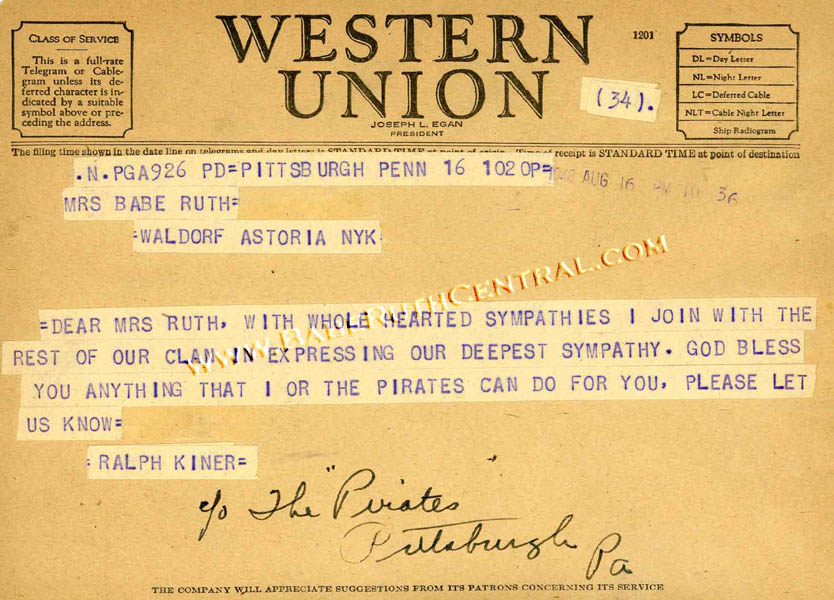 CLASS OF SERVICE
This is a full-rate
Telegram or Cable-
gram unless its de-
ferred character is in-
dicated by a suitable
symbol above or pre-
ceding the address.
WESTERN
UNION
JOSEPH L. EGAN
PRESIDENT
1201
(34).
SYMBOLS
DL=Day Letter
NL=Night Letter
LC=Deferred Cable
NLT=Cable Night Letter
Ship Radiogram
The filing time shown in the date line on telegrams and day letters is STANDARD TIME at point of origin. Time of receipt is STANDARD TIME at point of destination
.N.PGA926 PD=PITTSBURGH PENN 16 1020P=
1948 AUG 16 PM 10 36
MRS BABE RUTH=
=WALDORF ASTORIA NYK
WWW.BABERUTHCENTRAL.COM
=DEAR MRS RUTH, WITH WHOLE HEARTED SYMPATHIES I JOIN WITH THE
REST OF OUR CLAN IN EXPRESSING OUR DEEPEST SYMPATHY. GOD BLESS
YOU ANYTHING THAT I OR THE PIRATES CAN DO FOR YOU, PLEASE LET
US KNOW=
=RALPH KINER=
c/o The "Pirates"
Pittsburgh Pa
THE COMPANY WILL APPRECIATE SUGGESTIONS FROM ITS PATRONS CONCERNING ITS SERVICE